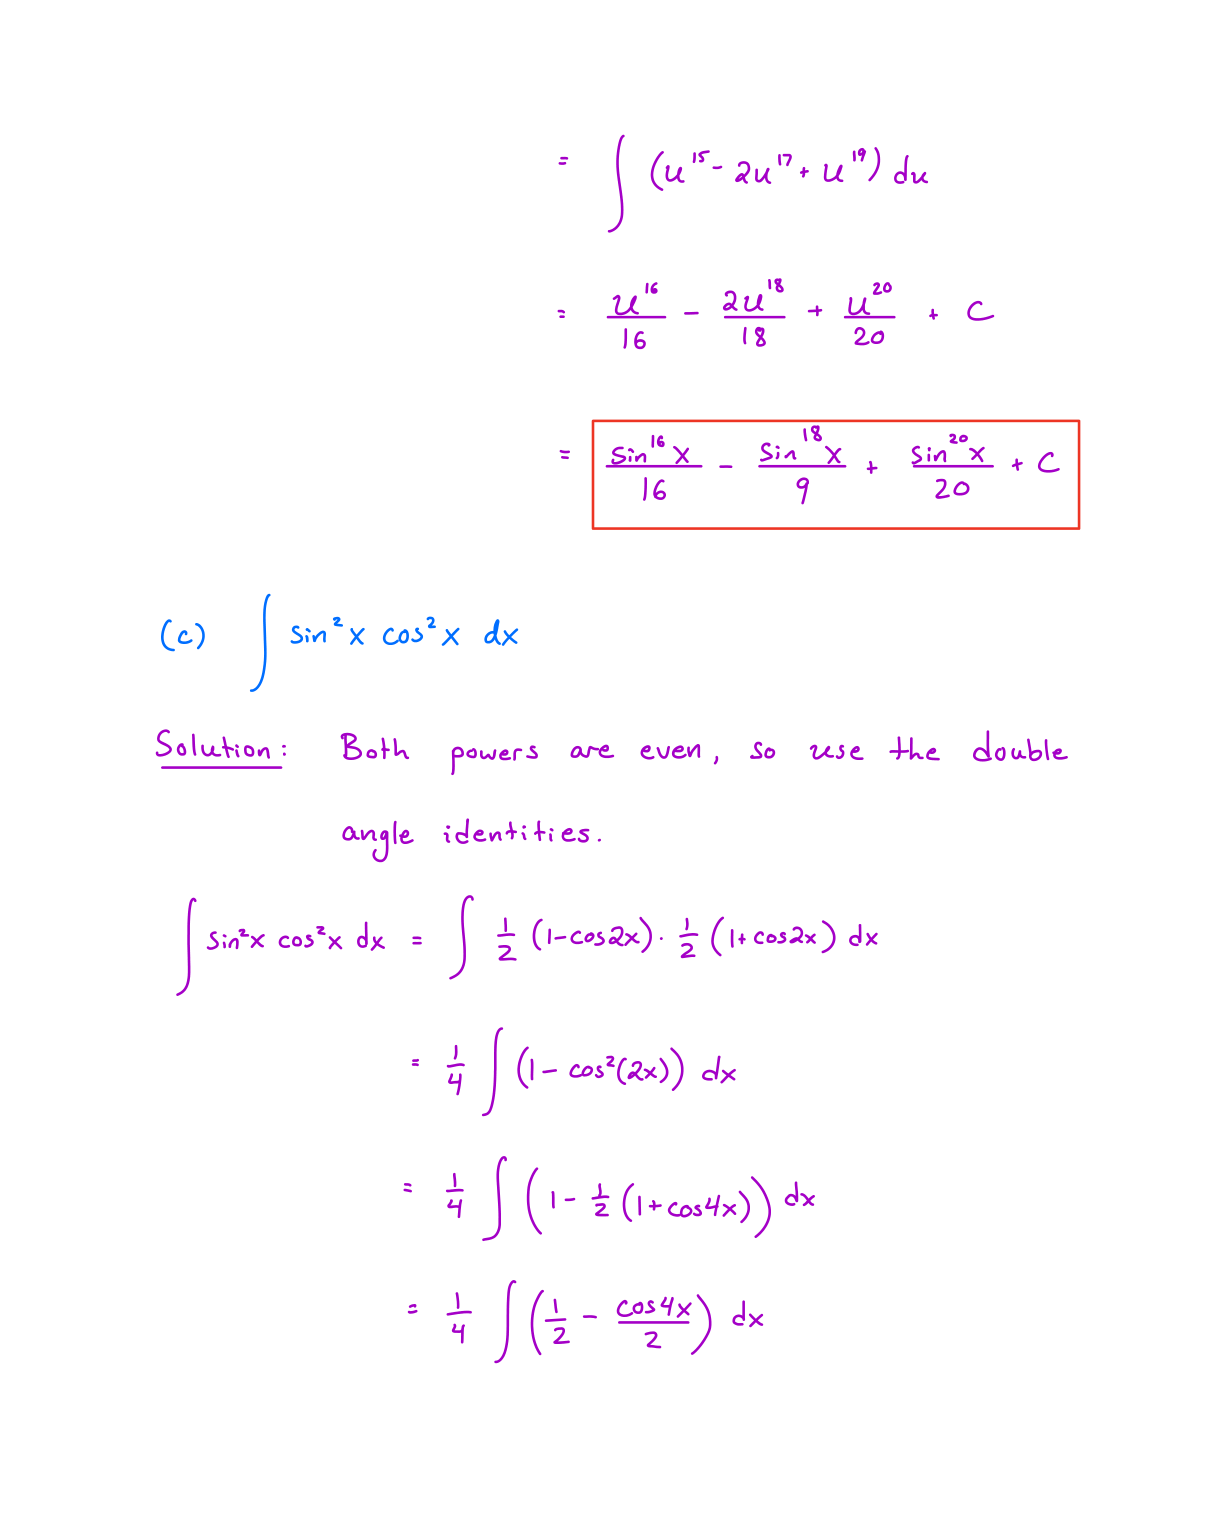 = ∫ (u¹⁵ - 2u¹⁷ + u¹⁹) du
= u¹⁶/16 - 2u¹⁸/18 + u²⁰/20 + C
= sin¹⁶x/16 - sin¹⁸x/9 + sin²⁰x/20 + C
(c) ∫ sin²x cos²x dx
Solution: Both powers are even, so use the double
angle identities.
∫ sin²x cos²x dx = ∫ 1/2 (1-cos2x) · 1/2 (1+cos2x) dx
= 1/4 ∫ (1 - cos²(2x)) dx
= 1/4 ∫ (1 - 1/2 (1+cos4x)) dx
= 1/4 ∫ (1/2 - cos4x/2) dx